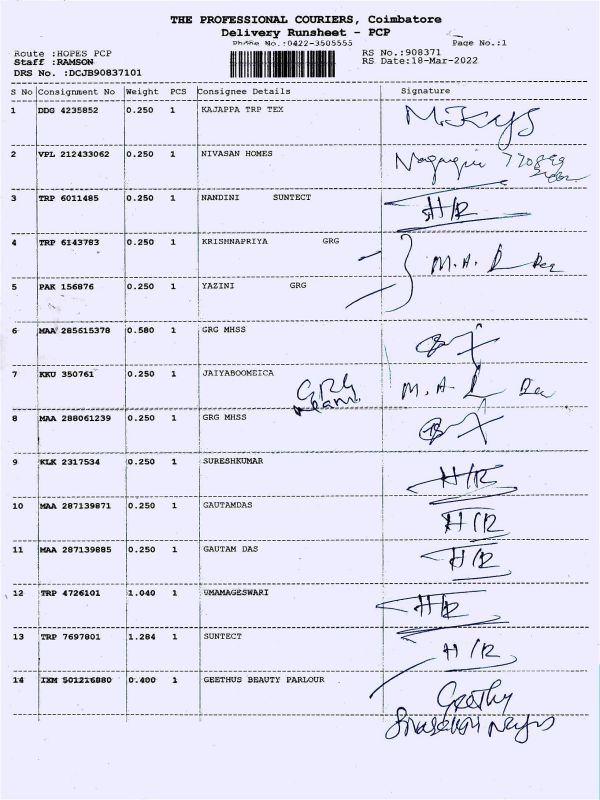 THE PROFESSIONAL COURIERS, Coimbatore
Delivery Runsheet - PCP
Phone No.:0422-3505555
Page No.:1
Route :HOPES PCP
RS No.:908371
Staff :RAMSON
RS Date:18-Mar-2022
DRS No. :DCJB90837101
S No Consignment No Weight PCS Consignee Details Signature
1 DDG 4235852 0.250 1 KAJAPPA TRP TEX
2 VPL 212433062 0.250 1 NIVASAN HOMES
3 TRP 6011485 0.250 1 NANDINI SUNTECT H/R
4 TRP 6143783 0.250 1 KRISHNAPRIYA GRG M.A.
5 PAK 156876 0.250 1 YAZINI GRG
6 MAA 285615378 0.580 1 GRG MHSS
7 KKU 350761 0.250 1 JAIYABOOMEICA GRG M.A.
8 MAA 288061239 0.250 1 GRG MHSS
9 KLK 2317534 0.250 1 SURESHKUMAR H/R
10 MAA 287139871 0.250 1 GAUTAMDAS H/R
11 MAA 287139885 0.250 1 GAUTAM DAS H/R
12 TRP 4726101 1.040 1 UMAMAGESWARI H/R
13 TRP 7697801 1.284 1 SUNTECT H/R
14 IXM 501216880 0.400 1 GEETHUS BEAUTY PARLOUR Geethy